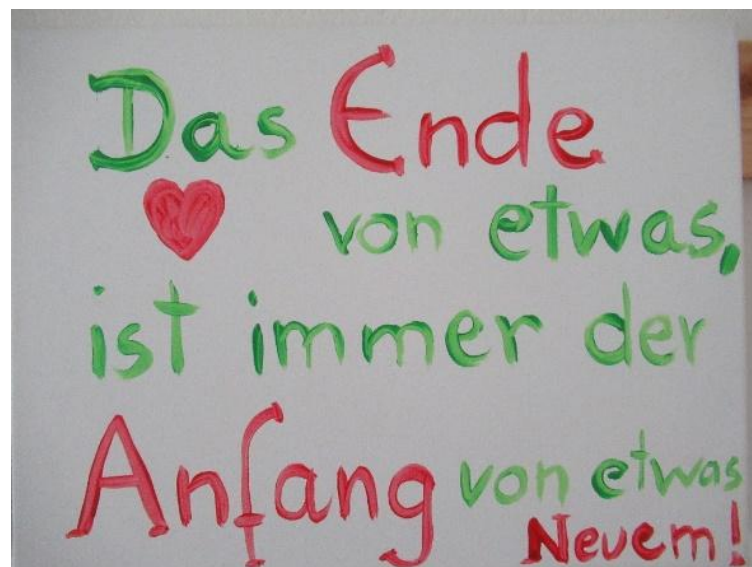 Das Ende
von etwas,
ist immer der
Anfang von etwas
Neuem!